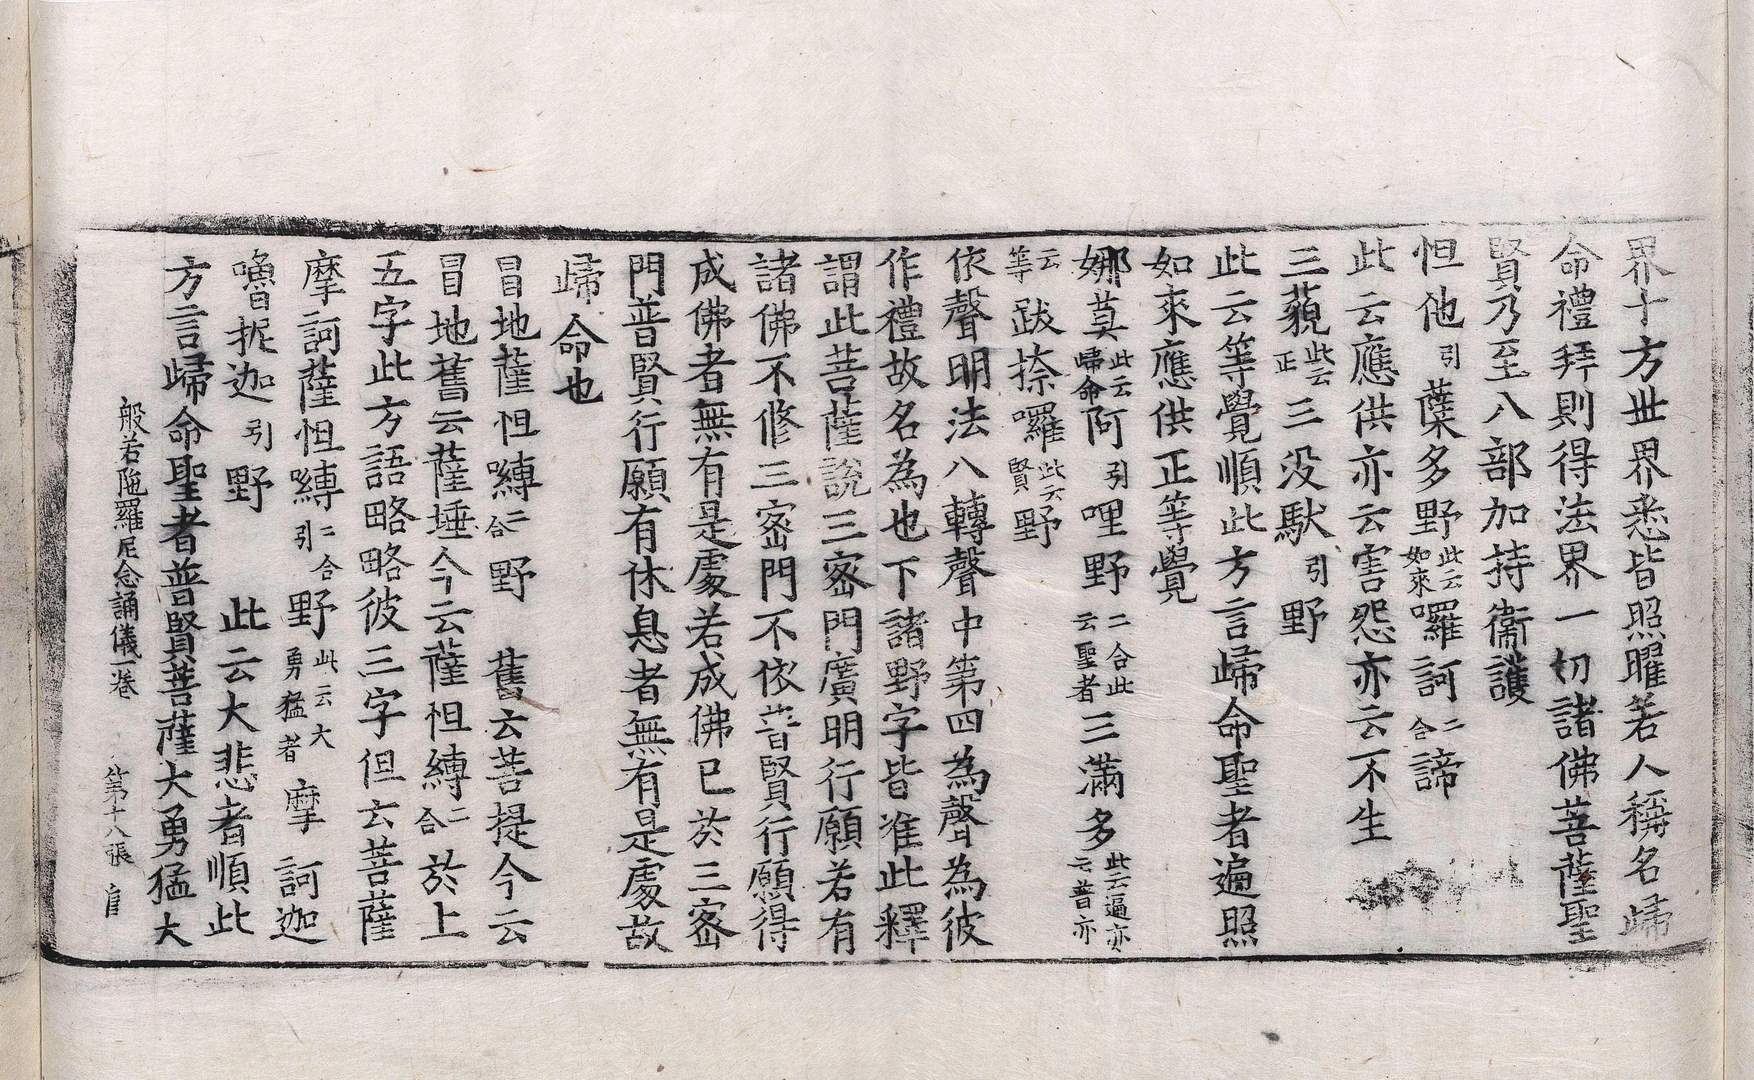 界十方世界悉皆照曜若人稱名歸
命禮拜則得法界一切諸佛菩薩聖
賢乃至八部加持衞護
怛他引蘗多野此云如來囉訶二合諦
此云應供亦云害怨亦云不生
三藐此云正三沒馱引野
此云等覺順此方言歸命聖者遍照
如來應供正等覺
娜莫此云歸命阿引哩野二合此云聖者三滿多此云遍亦云普亦
云等跋捺囉此云賢野
依聲明法八轉聲中第四為聲為彼
作禮故名為也下諸野字皆准此釋
謂此菩薩說三密門廣明行願若有
諸佛不修三密門不依普賢行願得
成佛者無有是處若成佛已於三密
門普賢行願有休息者無有是處故
歸命也
冒地薩怛嚩二合野 舊云菩提今云
冒地舊云薩埵今云薩怛縛二合於上
五字此方語略略彼三字但云菩薩
摩訶薩怛嚩二合引野此云大勇猛者摩訶迦
嚕抳迦引野 此云大悲者順此
方言歸命聖者普賢菩薩大勇猛大
般若陁羅尼念誦儀一卷 第十八張